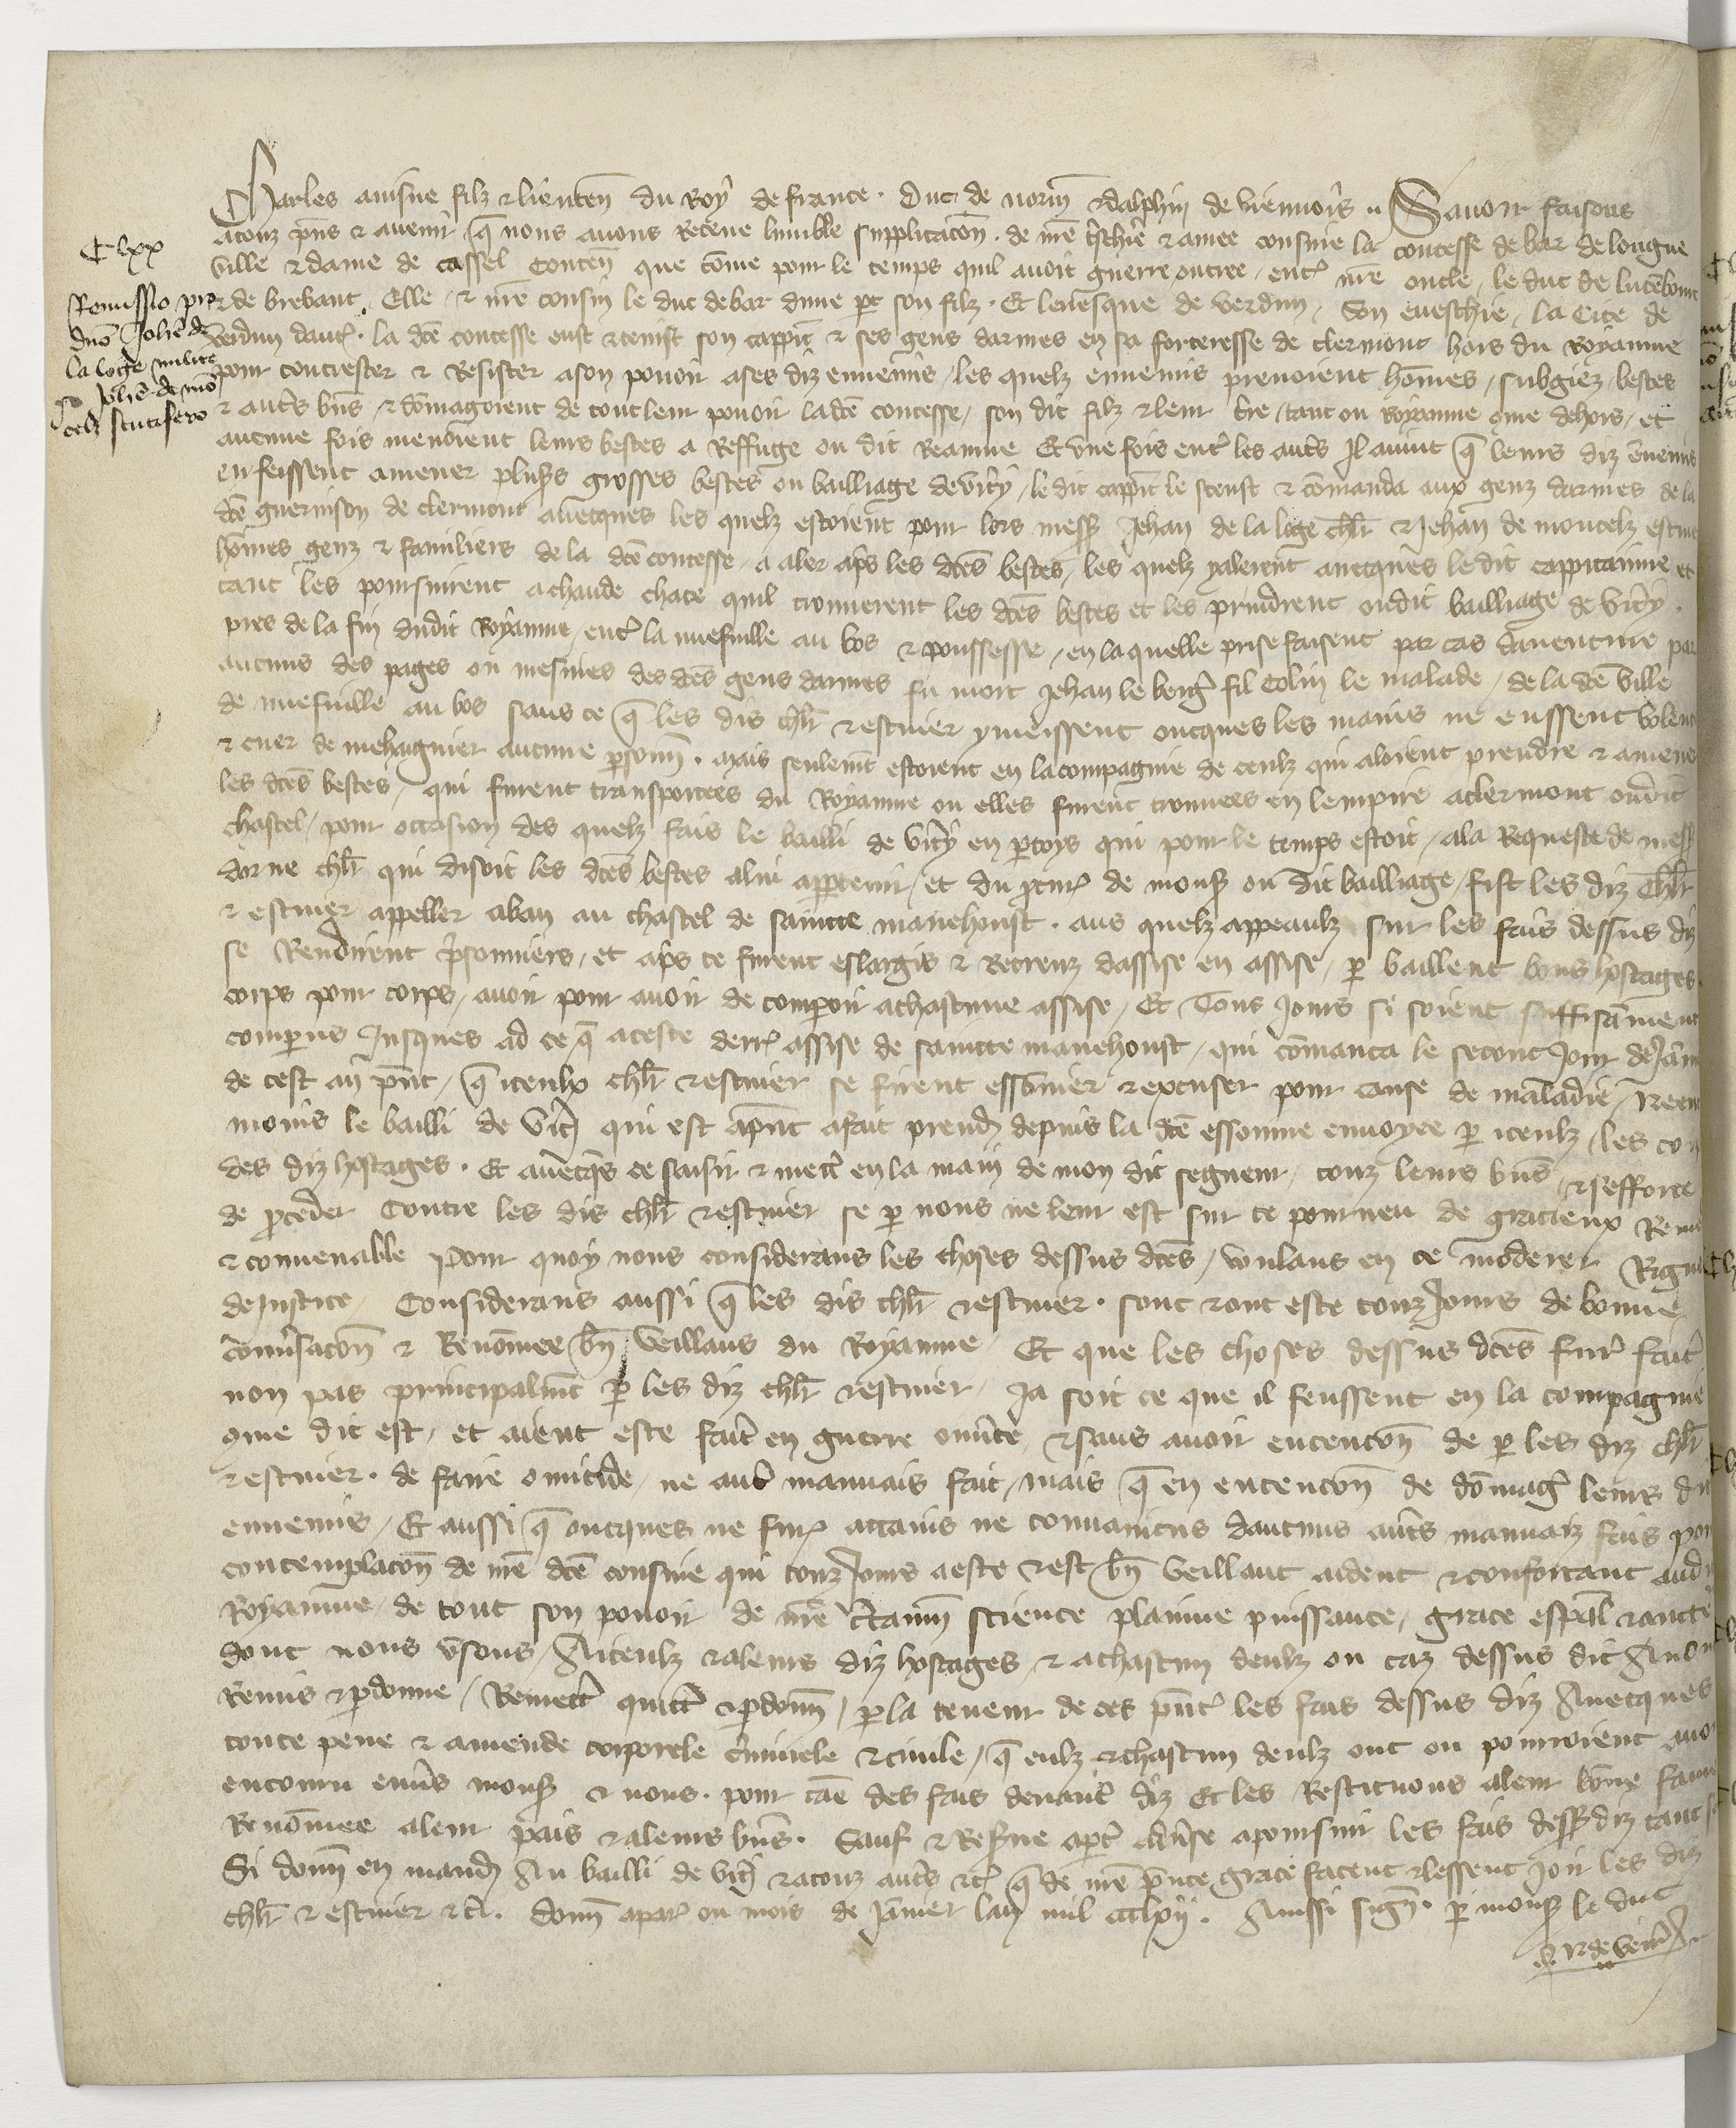 Charles ainsne filz & lieuten du Roy de france . Duc de norm & dalphin de viennois . Savoir faisons
C lxx
atouz pns & avenir q̄ nous avons Receue humble supplicacōn . de nrē tschiere & amee cousine la contesse de bar de longue
ville & dame de cassel Conten que cōme pour le temps quil avoit guerre ouverte / entr nrē oncle / le duc de lucēbourc
Remissio pro
& de brebant . Elle / & nrē cousin le duc de bar dune pt son filz . Et levesque de verdun / Son eveschie / la Cite de
dno Johe de
verdun dautr . la dcē contesse eust & tenist son cappit & ses gens darmes en sa forteresse de clermont hors du Royaume
la loge milite
pour contrester & Resister ason povoir ases diz ennemis / les quelz ennemis prenoient hōmes / subgiez / bestes
Johe de mō
celz scutifero
& autrs bns / & dōmagoient de tout leur povoir ladcē contesse / son dit filz & leur trē / tant ou Royaume cme dehors / et
aucune fois menoient leurs bestes a Reffuge ou dit Reaume Et une fois entr les autrs Il avint q̄ leurs diz ennemis
en feissent amener pluss grosses bestes ou bailliage de vitry / le dit capit le sceust & cōmanda aux genz darmes de la
dcē guernison de clermont avecques les quelz estoient pour lors mess Jehan de la loge chlr & Jehan de moncelz escuie
hōmes genz & familiers de la dcē contesse / a aler aps les dcēs bestes / les quelz yalerent avecques ledit cappitainne et
tant les poursuirent achaude chace quil trouverent les dcēs bestes et les prindrent oudit bailliage de vitry .
pres de la fin dudit Royaume / entr la nuefville au bos & poussesse / en laquelle prise faisent par cas daventure par
aucuns des pages ou mesmes des dcēs gens darmes fu mort Jehan le bergr fil Colin le malade / de la dcē ville
de nuefville au bos sans ce q̄ les dis chlr & escuier ymeissent oncques les mains ne eussent volent
& cuer de mehaignier aucune psonn . mais seulemt estoient en lacompagnie de ceulz qui aloient prendre & amener
les dcēs bestes / qui furent transportees du Royaume ou elles furent trouvees en lempire aclermont oudit
chastel / pour occasion des quelz fais le bailli de vitry en ptoys qui pour le temps estoit / ala Requeste de mess
dorne chlr qui disoit les dcēs bestes alui appartenir / et du pcur de mons ou dit bailliage / fist les diz chlr
& escuier appeller aban au chastel de saincte manehoust . aus quelz appeaulz sur les fais dessus diz
se Rendirent psonniers / et aps ce furent eslargis & Recreuz dassise en assise / p baillent bons hostages
corps pour corps / avoir pour avoir de compoir achascune assise / Et Tous Jours si soient suffisāment
comparus Jusques ad ce q̄ aceste derr assise de saincte manehoust / qui cōmanca le secont Jour de Janv
de cest an pnt / q̄ iceulx chlr & escuier se firent essōnier & excuser pour cause de maladie / Neen
moins le bailli de vitry qui est apnt afait prendr depuis la dcē essonne envoyee p iceulz / les co
des diz hostages . Et avecqs ce saisir & mettr en la main de mon dit segneur / touz leurs bns / & sefforce
de pceder Contre les dis chlr & escuier se p nous ne leur est sur ce pourveu de gracieux Reme
& convenable Pour quoy nous considerans les choses dessus dcēs / voulans en ce moderer Rigue
de Justice / Considerans aussi q̄ les dis chlr & escuier . sont & ont este touz Jours de bonne
convsacōn & Renōmee bn veillans du Royaume / Et que les choses dessus dcēs furr fait
non pas principalmt p les diz chlr & escuier / Ja soit ce que il feussent en la compagnie
cme dit est / et aient este fait en guerre ouvte / & sans avoir entencōn de p les diz chlr
& escuier . de faire omicide / ne autr mauvais fait / mais q̄ en entencōn de dōmagr leurs diz
ennemis / Et aussi q̄ oncques ne fur attains ne convaincus daucuns autrs mauvaiz fais / pour
contemplacōn de nrē dcē cousine qui touzJours aeste & est bn veillant aident & confortant aud
Royaume / de tout son povoir de nrē ctainn science plainne puissance / grace espal & aucte
dont nous usons / Aiceulz & aleurs diz hostages / & achascun deulz ou cas dessus dit Avo
Remis & pdonne / Remettr quitt & pdonn / p la teneur de ces pnt les fais dessus diz Avecques
toute pene & amende corporele criminele & civile / q̄ eulz & chascun deulz ont ou pourroient avo
encouru envs mons & nous . pour cāe des fais devant diz Et les Restituons aleur bonne fame
Renōmee aleur pais & aleurs bns . Sauf & Resve apt advse apoursuir les fais dess diz tant
Si donn en mand Au bailli de vitry & atouz autrs &c q̄ de nrē pnte grace facent & lessent Joir les diz
chlr & escuier &c . Donn apar ou mois de Janvier lan mil ccclxij . Aussi sign . p mons le duc